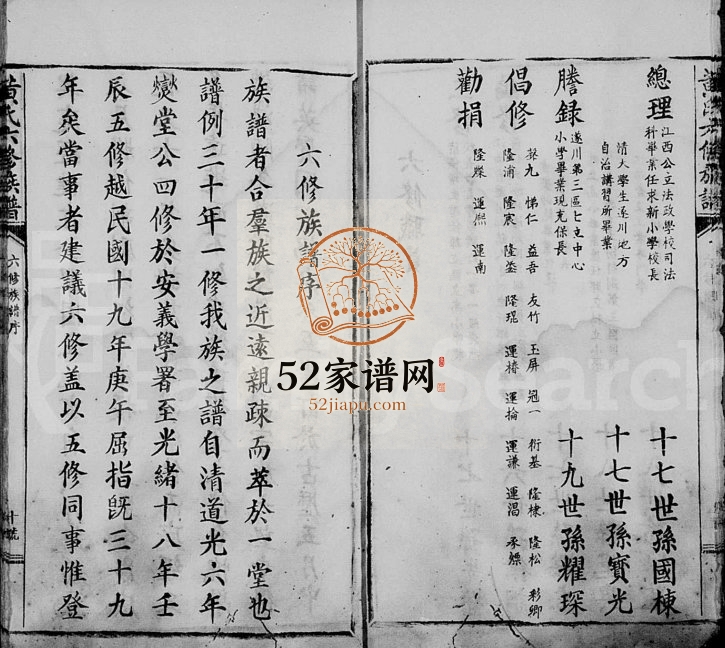 總理
江西公立法政學校司法
科畢業任求新小學校長
十七世孫國棟
清大學生遂川地方
自治講習所畢業
十七世孫寶光
謄録
遂川第三區七支中心
小學畢業現充保長
十九世孫耀琛
倡修
益吾 友竹 玉屏 冠一 衍基 隆棣 隆松 彩卿
隆浦 隆宸 隆鎣 隆琨 運椿 運掄 運謙 運淐
勸捐
運熈 運南
六修族譜序
族譜者合羣族之近遠親疎而萃於一堂也
譜例三十年一修我族之譜自清道光六年
爕堂公四修於安義學署至光緒十八年壬
辰五修越民國十九年庚午屈指旣三十九
年矣當事者建議六修盖以五修同事惟登
黃氏六修族譜
六修族譜序
52家谱网
52jiapu.com